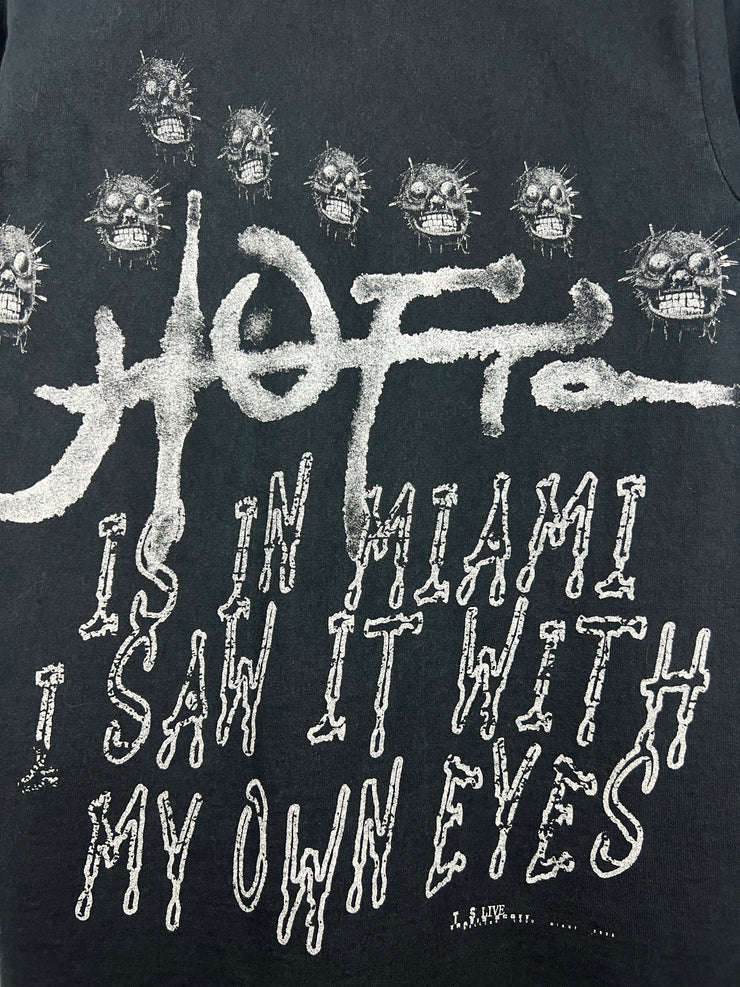 HOFTO
IS IN MIAMI
I SAW IT WITH
MY OWN EYES
T S LIVE